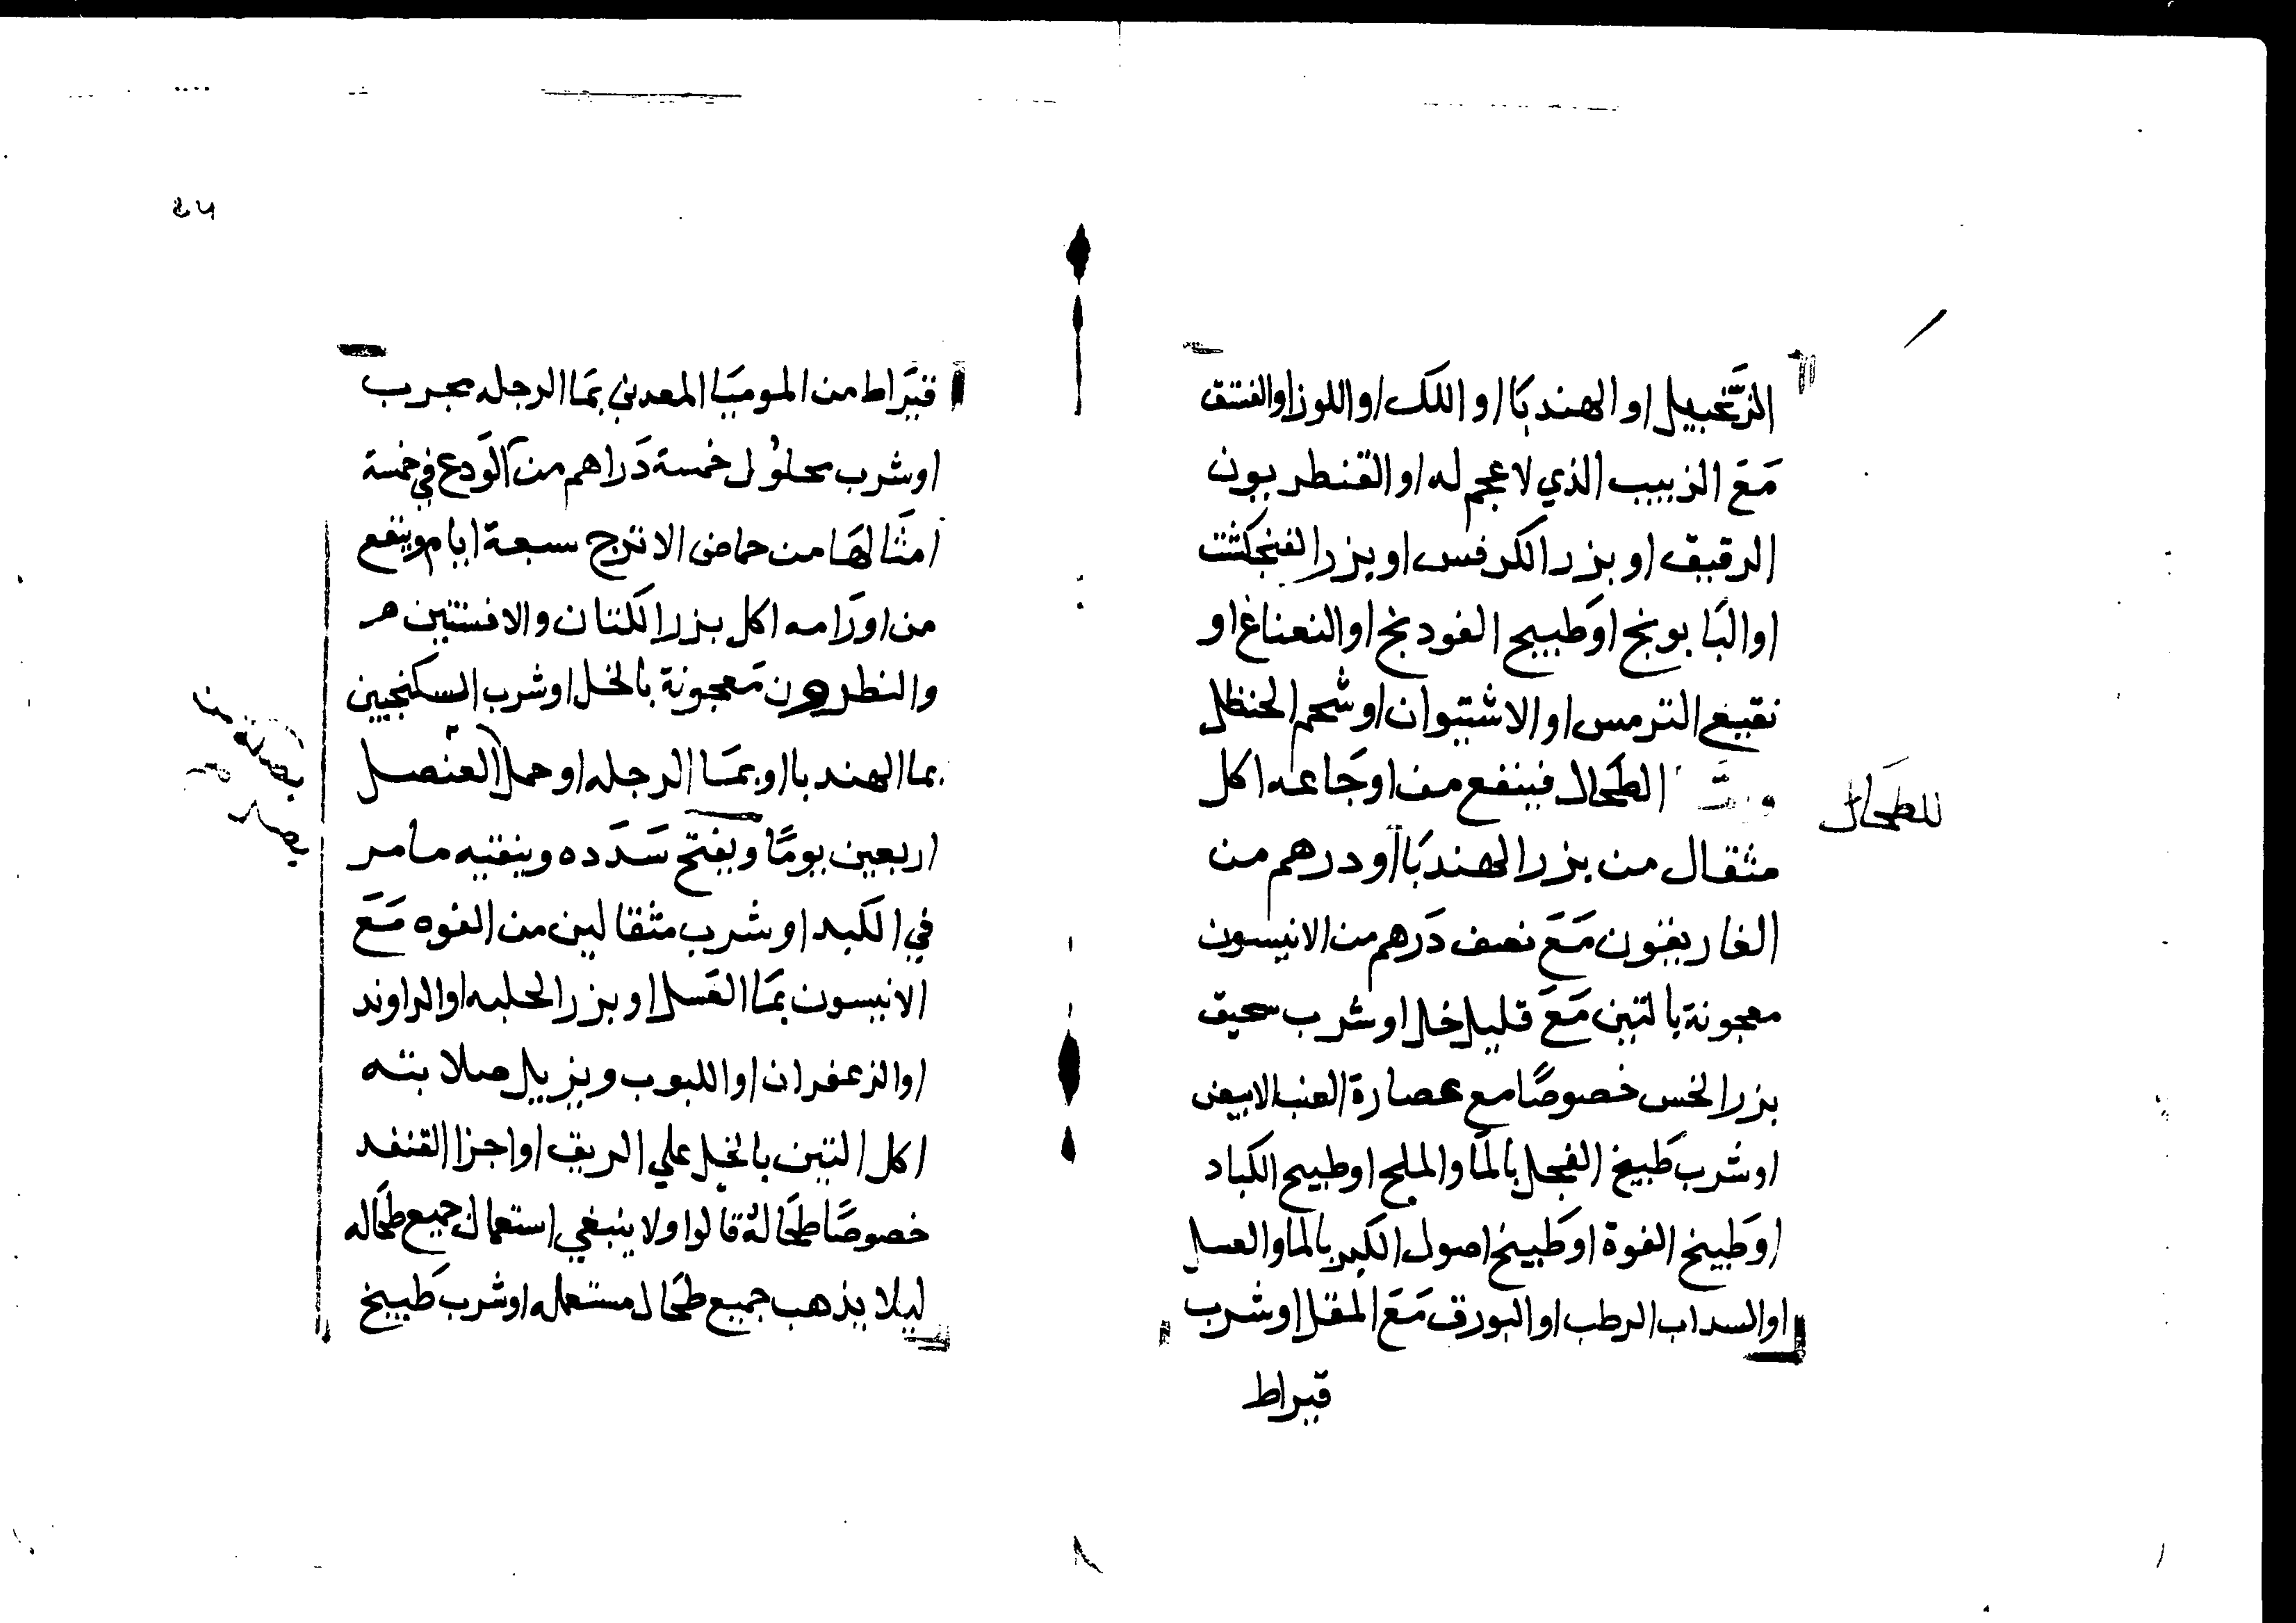 الزنجبيل او الهندبا او اللك او اللوز او الفستق
مع الزبيب الذي لا عجم له او القنطريون
الرقيق او بزر الكرفس او بزر الفنجكشت
او البابونج او طبيخ الفودنج او النعناع او
نقيع الترمس او الاشتيوان او شحم الحنظل
الطحال فينفع من اوجاعه اكل
للطحال
مثقال من بزر الهندبا او درهم من
الغاريقون مع نصف درهم من الانيسون
معجونة بالتين مع قليل خل او شرب سحيق
بزر الخس خصوصًا مع عصارة العنب الابيض
او شرب طبيخ الفجل بالما والملح او طبيخ الكباد
او طبيخ الفوة او طبيخ اصول الكبر بالما والعسل
او السداب الرطب او البورق مع المقل او شرب
قيراط
قيراط من الموميا المعدني بما الرجله مجرب
او شرب محلول خمسة دراهم من الودع في خمسة
امثالها من حماض الاترج سبعة ايام وينفع
من اورامه اكل بزر الكتان والافسنتين
والنطرون معجونة بالخل او شرب السكنجبين
بما الهندبا او بما الرجله او حمل العنصل
اربعين يومًا ويفتح سدده وينقيه ما مر
في الكبد او شرب مثقالين من الفوه مع
الانيسون بما العسل او بزر الحلبه او الراوند
او الزعفران او اللبوب ويزيل صلابته
اكل التين بالخل علي الريق او اجزا القنفد
خصوصًا طحاله قالوا ولا ينبغي استعمال جميع طحاله
ليلا يذهب جميع طحال مستعمله او شرب طبيخ